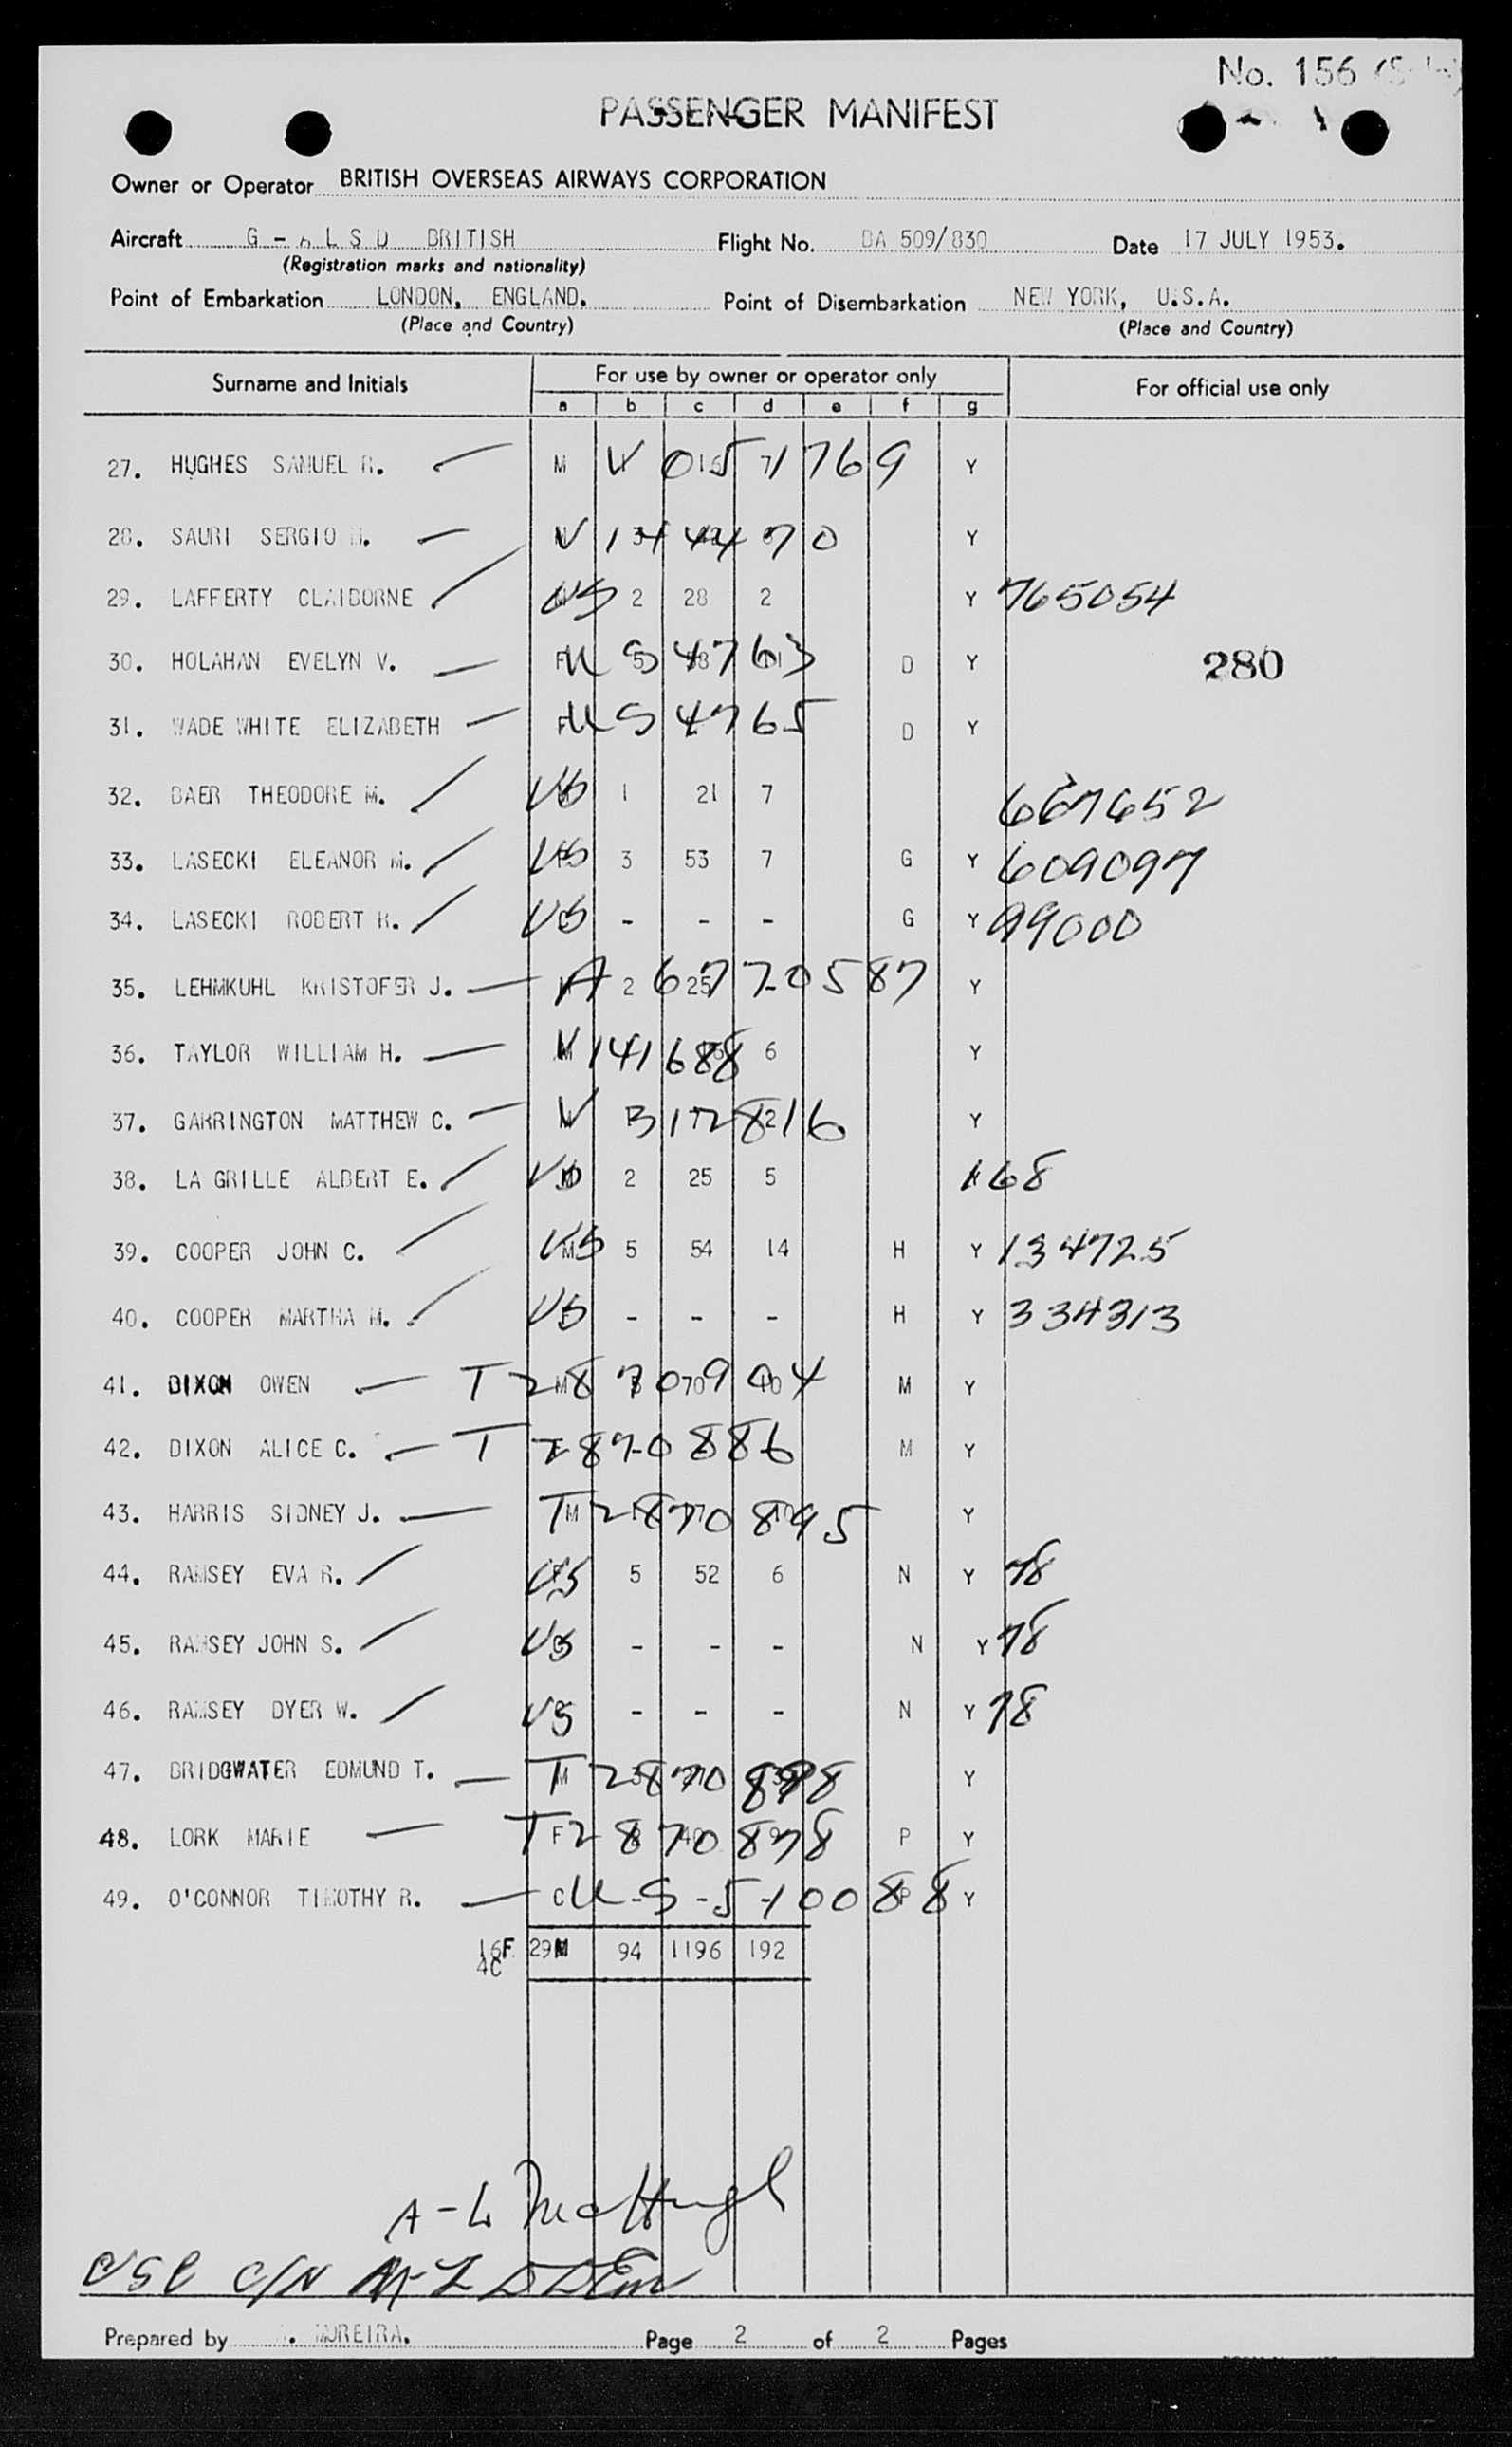 No. 156
PASSENGER MANIFEST
Owner or Operator BRITISH OVERSEAS AIRWAYS CORPORATION
Aircraft G - A L S D BRITISH Flight No. BA 509/830 Date 17 JULY 1953.
(Registration marks and nationality)
Point of Embarkation LONDON, ENGLAND. Point of Disembarkation NEW YORK, U.S.A.
(Place and Country) (Place and Country)
Surname and Initials For use by owner or operator only For official use only
a b c d e f g
27. HUGHES SAMUEL R. M V 0151769 Y
28. SAURI SERGIO M. V 1444070 Y
29. LAFFERTY CLAIBORNE US 2 28 2 Y 765054
30. HOLAHAN EVELYN V. F US 4763 D Y
280
31. WADE WHITE ELIZABETH F US 4765 D Y
32. BAER THEODORE M. US 1 21 7 667652
33. LASECKI ELEANOR M. US 3 53 7 G Y 609097
34. LASECKI ROBERT K. US - - - G Y 99000
35. LEHMKUHL KRISTOFER J. A 2 6770587 Y
36. TAYLOR WILLIAM H. V 141688 6 Y
37. GARRINGTON MATTHEW C. V B172816 Y
38. LA GRILLE ALBERT E. US 2 25 5 168
39. COOPER JOHN C. US M 5 54 14 H Y 134725
40. COOPER MARTHA M. US - - - H Y 334313
41. DIXON OWEN T 2870904 M Y
42. DIXON ALICE C. T 2870886 M Y
43. HARRIS SIDNEY J. T M 2870895 Y
44. RAMSEY EVA R. US 5 52 6 N Y 78
45. RAMSEY JOHN S. US - - - N Y 78
46. RAMSEY DYER W. US - - - N Y 78
47. BRIDGWATER EDMUND T. T M 2870898 Y
48. LORK MARIE T F 2870878 P Y
49. O'CONNOR TIMOTHY R. C US - 5 - 100888 P Y
16F 29M 94 1196 192
4C
A-L MacHugh
USC C/N
Prepared by MOREIRA. Page 2 of 2 Pages